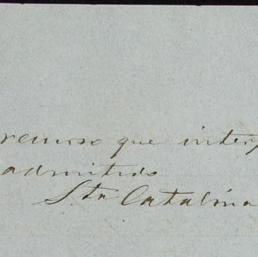 recurso que interp
admitido
Sta Catalina